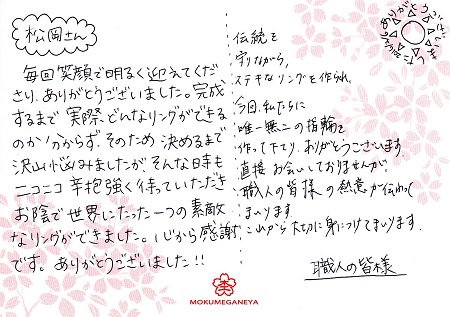 松岡さん
毎回笑顔で明るく迎えてくだ
さり、ありがとうございました。完成
するまで実際どんなリングができる
のか分からず、そのため決めるまで
沢山悩みましたが、そんな時も
ニコニコ辛抱強く待っていただき
お陰で世界にたった一つの素敵
なリングができました。心から感謝
です。ありがとうございました!!
伝統を
守りながら、
ステキなリングを作られ、
今回、私たちに
唯一無二の指輪を
作って下さり、ありがとうございます。
直接お会いしておりませんが、
職人の皆様の熱意が伝わって
まいります。
これから大切に身につけてまいります。
職人の皆様
MOKUMEGANEYA